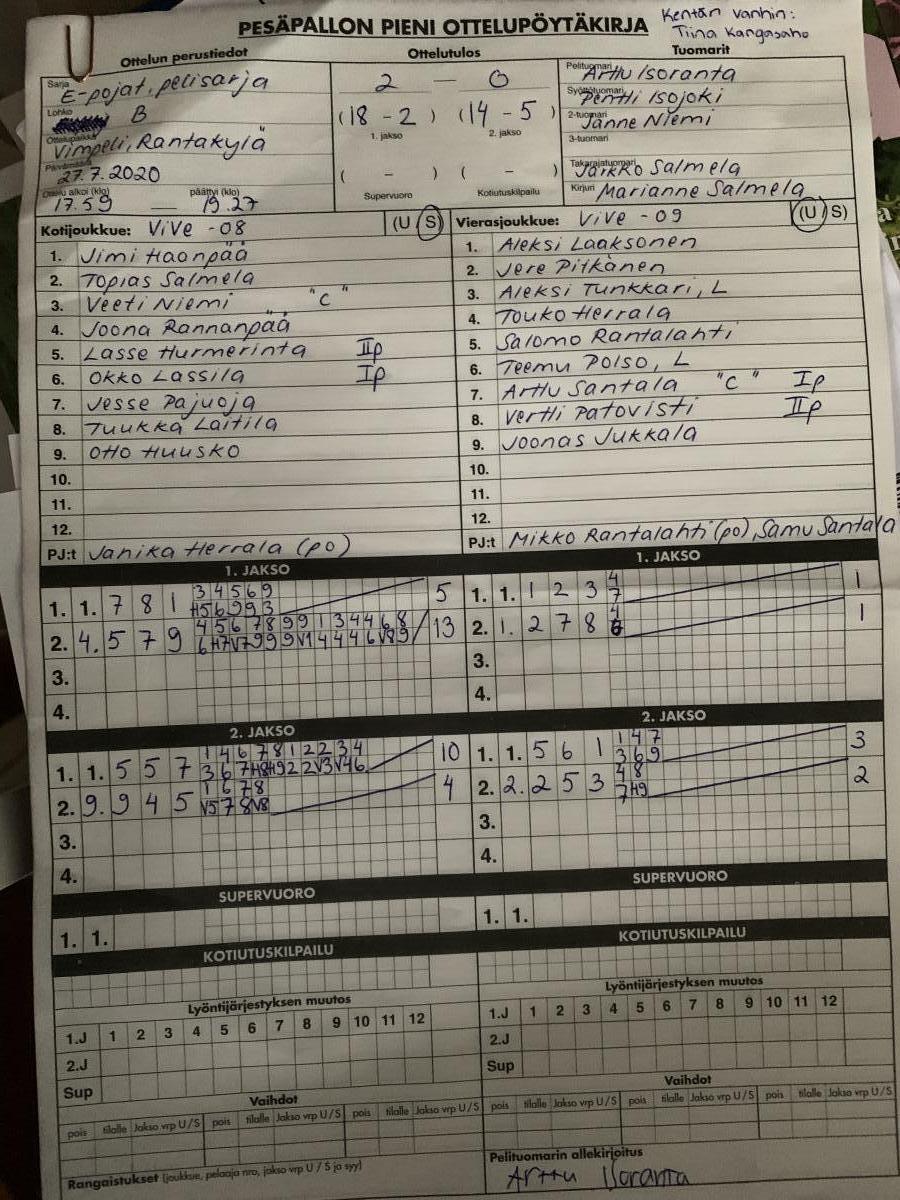 Kentän vanhin:
Tiina Kangasaho
PESÄPALLON PIENI OTTELUPÖYTÄKIRJA
Ottelun perustiedot
Sarja E-pojat, pelisarja
Lohko B
Ottelupaikka Vimpeli, Rantakylä
Päivämäärä 27.7.2020
Ottelu alkoi (klo) päättyi (klo)
17.59 — 19.27
Ottelutulos
2 — 0
(18 - 2) (14 - 5)
1. jakso 2. jakso
( - ) ( - )
Supervuoro Kotiutuskilpailu
Tuomarit
Pelituomari Arttu Isoranta
Syöttötuomari Pentti Isojoki
2-tuomari Janne Niemi
3-tuomari
Takarajatuomari Jarkko Salmela
Kirjuri Marianne Salmela
Kotijoukkue: ViVe -08 (U S)
1. Jimi Haanpää
2. Topias Salmela
3. Veeti Niemi "C"
4. Joona Rannanpää
5. Lasse Hurmerinta IIp
6. Okko Lassila Ip
7. Jesse Pajuoja
8. Tuukka Laitila
9. Otto Huusko
10.
11.
12.
PJ:t Janika Herrala (po)
Vierasjoukkue: ViVe -09 (U/S)
1. Aleksi Laaksonen
2. Jere Pitkänen
3. Aleksi Tunkkari, L
4. Touko Herrala
5. Salomo Rantalahti
6. Teemu Polso, L
7. Arttu Santala "C" Ip
8. Vertti Patovisti IIp
9. Joonas Jukkala
10.
11.
12.
PJ:t Mikko Rantalahti (po), Samu Santala
1. JAKSO
3 4 5 6 9
1. 1. 7 8 1 H5 6 9 9 3 5
4 5 6 7 8 9 9 1 3 4 4 6 8
2. 4. 5 7 9 13
3.
4.
1. JAKSO
4
1. 1. 1 2 3 7 1
4
2. 1. 2 7 8 1
3.
4.
2. JAKSO
1 4 6 7 8 1 2 2 3 4
1. 1. 5 5 7 3 6 7 H8 H9 2 2 V3 V4 6 10
1 6 7 8
2. 9. 9 4 5 V5 7 8 V8 4
3.
4.
2. JAKSO
1 4 7
1. 1. 5 6 1 3 6 9 3
4 8
2. 2. 2 5 3 7 H9 2
3.
4.
SUPERVUORO
1. 1.
SUPERVUORO
1. 1.
KOTIUTUSKILPAILU
KOTIUTUSKILPAILU
Lyöntijärjestyksen muutos
1.J 1 2 3 4 5 6 7 8 9 10 11 12
2.J
Sup
Lyöntijärjestyksen muutos
1.J 1 2 3 4 5 6 7 8 9 10 11 12
2.J
Sup
Vaihdot
pois tilalle Jakso vrp U/S pois tilalle Jakso vrp U/S pois tilalle Jakso vrp U/S
Vaihdot
pois tilalle Jakso vrp U/S pois tilalle Jakso vrp U/S pois tilalle Jakso vrp U/S
Rangaistukset (joukkue, pelaaja nro, jakso vrp U / S ja syy)
Pelituomarin allekirjoitus
Arttu Isoranta